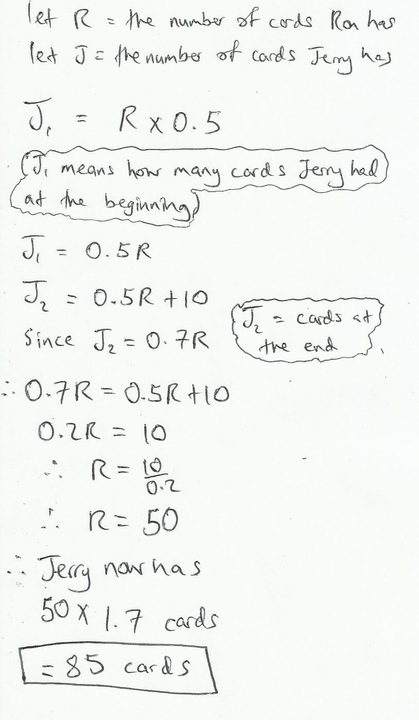 let R = the number of cards Ron has
let J = the number of cards Jerry has
J₁ = R x 0.5
(J₁ means how many cards Jerry had
at the beginning)
J₁ = 0.5R
J₂ = 0.5R + 10
Since J₂ = 0.7R
J₂ = cards at
the end
∴ 0.7R = 0.5R + 10
0.2R = 10
∴ R = 10/0.2
∴ R = 50
∴ Jerry now has
50 x 1.7 cards
= 85 cards